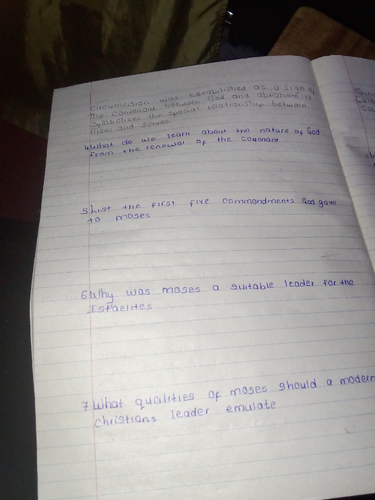 Circumcision was established as a sign of
the covenant between God and abraham it
symbolises the special relationship between
them and
4 What do we learn about the nature of God
from the renewal of the
5 List the first five commandments God gave
to moses
6 Why was moses a suitable leader for the
Israelites
7 What qualities of moses should a modern
christians leader emulate